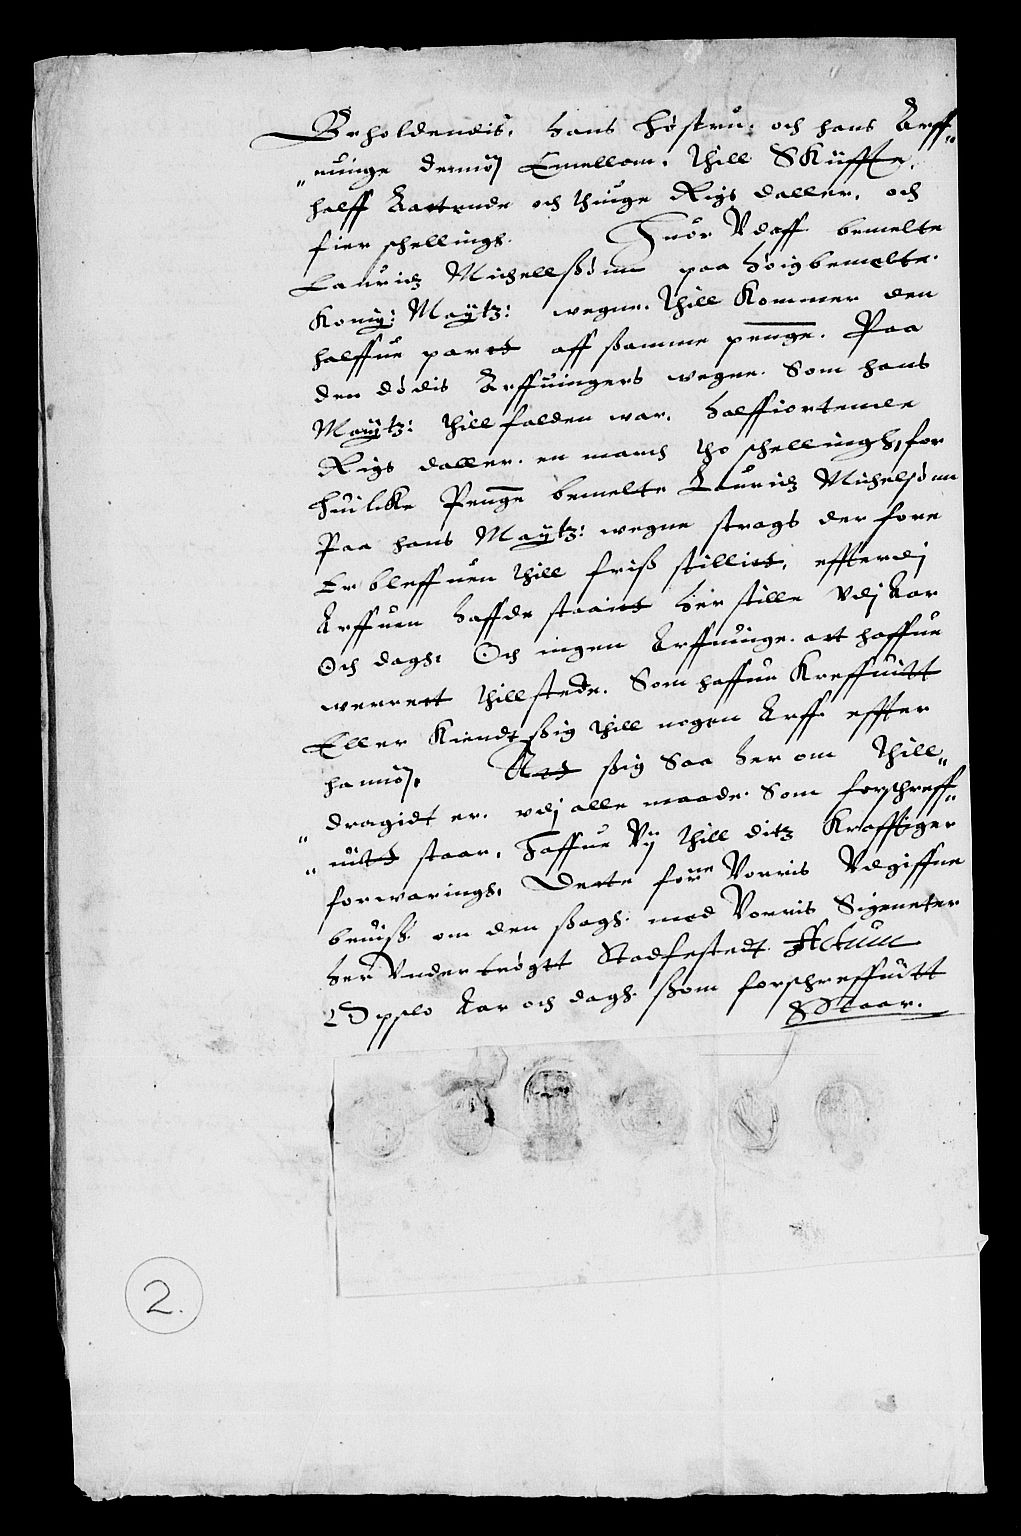 Beholdendis, hans høstru: och hans Arff¬
"uinge dennøm Emellom, Thill Skiffte,
halff Aattende och thiuge Rigs daller, och
fier schellingh. Huor Vdaff bemelte
Lauridz Michellssønn paa høigbemelte
Konig: Maÿtz: wegne, Thill Kommer den
halffue partt aff ssamme penge. Paa
den dødis Arffuingers wegne. Som hans
Maÿtz: Thillfalden war, halffiortende
Rigs daller, en march tho schellingh, for
huilcke Penge bemelte Lauridz Michelsønn
Paa hans Maÿtz: wegne strags der fore
Er bleffuen thill friss stillitt, effterdj
Arffuen haffde staaitt her stille Vdj Aar
Och dagh: Och ingen Arffuinge att haffue
werrett thillstede. Som haffuer Kreffuitt
Eller Kiendt ssig thill nogen Arff effter
hannøm, Att ssig Saa her om Thill¬
"dragidt er, vdj alle maade. Som forschreff¬
"uitt staar, Haffue Vij thill ditz Krafftiger
forwaringh, Dette forne Vorris Vdgiffne
beuiss om den ssagh: med Vorris Signeter
her Vndertrøgtt Stadfestedt Actum
Opslo Aar och dagh ssom forschreffuitt
Staar.
2.